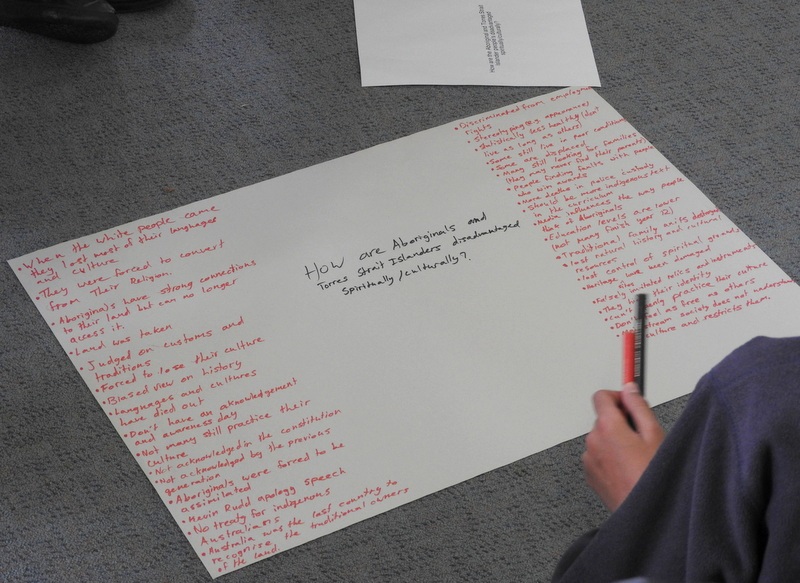 How are the Aboriginal and Torres Strait
Islander people's disadvantaged
spiritually/culturally?
How are Aboriginals and
Torres Strait Islanders disadvantaged
Spiritually/culturally?
• When the white people came
they lost most of their languages
and culture
• They were forced to convert
from Their Religion.
• Aboriginals have strong connections
to their land but can no longer
access it.
• Land was taken
• Judged on customs and
traditions
• Forced to lose their culture
• Biased view on history
• Languages and cultures
have died out
• Don't have an acknowledgement
and awareness day
• Not many still practice their
culture
• Not acknowledged in the constitution
• Not acknowledged by the previous
generation
• Aboriginals were forced to be
assimilated
• Kevin Rudd apology speech
• No treaty for indigenous
Australians
• Australia was the last country to
recognise
of the land the traditional owners
• Discriminated from employment
rights
• Stereotyping (e.g. appearance)
• Statistically less healthy (don't
live as long as others)
• Some still live in poor conditions
• Some are displaced
• Many still looking for families
(they may never find their parents)
• People finding faults with people
who win awards
• More deaths in police custody
• Should be more indigenous
in the curriculum
• Media influences the way people
think of Aboriginals
• Education levels are lower
(not many finish year 12)
• Traditional family units destroyed
• lost natural history and cultural
resources
• lost control of spiritual grounds
• heritage have been damaged
relics and instruments
• They their identity
• Can't practice their culture
• Don't as free as others
• society does not understand
culture and restricts them.